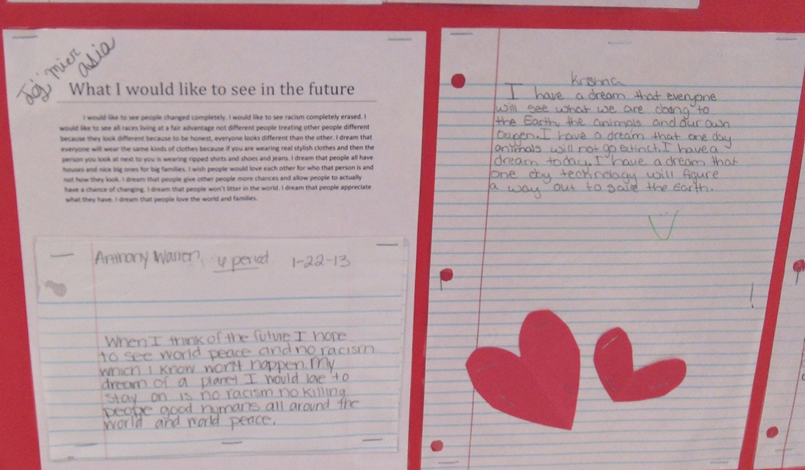 asia
What I would like to see in the future
I would like to see people changed completely. I would like to see racism completely erased. I
would like to see all races living at a fair advantage not different people treating other people different
because they look different because to be honest, everyone looks different than the other. I dream that
everyone will wear the same kinds of clothes because if you are wearing real stylish clothes and then the
person you look at next to you is wearing ripped shirts and shoes and jeans. I dream that people all have
houses and nice big ones for big families. I wish people would love each other for who that person is and
not how they look. I dream that people give other people more chances and allow people to actually
have a chance of changing. I dream that people won't litter in the world. I dream that people appreciate
what they have. I dream that people love the world and families.
Anthony Warren, period 1-22-13
When I think of the future I hope
to see world peace and no racism
which I know won't happen. My
dream of a planet I would love to
stay on is no racism no killing
people good humans all around the
world and world peace.
Krishna
I have a dream that everyone
will see what we are doing to
the Earth, the animals and our own
I have a dream that one day
animals will not go extinct. I have a
dream today. I have a dream that
one day technology will figure
a way out to save the Earth.